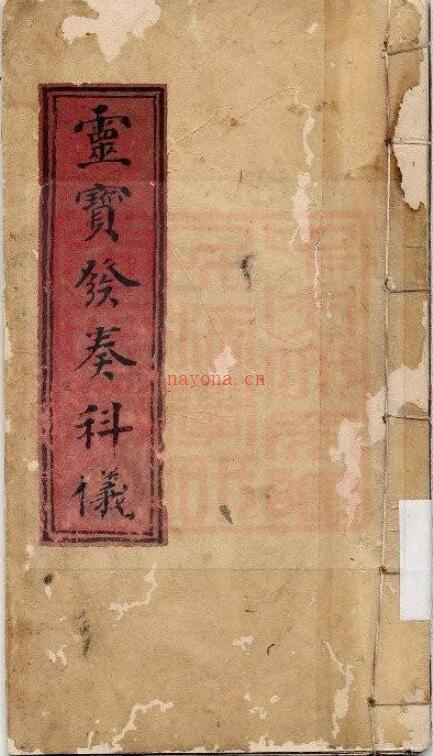 靈寶發奏科儀
nayona.cn